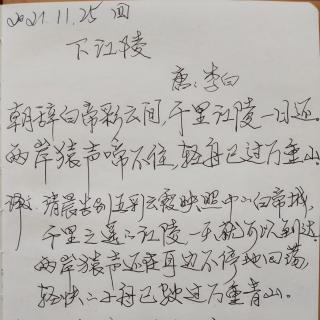 2021.11.25 四
下江陵
唐:李白
朝辞白帝彩云间,千里江陵一日还。
两岸猿声啼不住,轻舟已过万重山。
译文:清晨告别五彩云霞映照中的白帝城,
千里之遥的江陵一天就可以到达
两岸猿声还在耳边不停地回荡,
轻快的小舟已驶过万重青山。